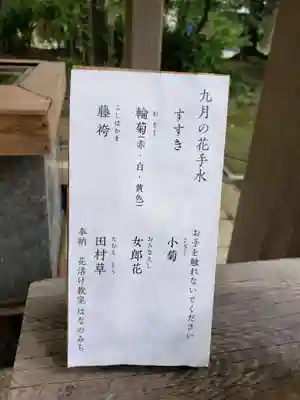 九月の花手水
お手を触れないでください
すすき
小菊
輪菊(赤・白・黄色)
おみなえし
女郎花
藤袴
たむら そう
田村草
奉納 花活け教室 はなのみち